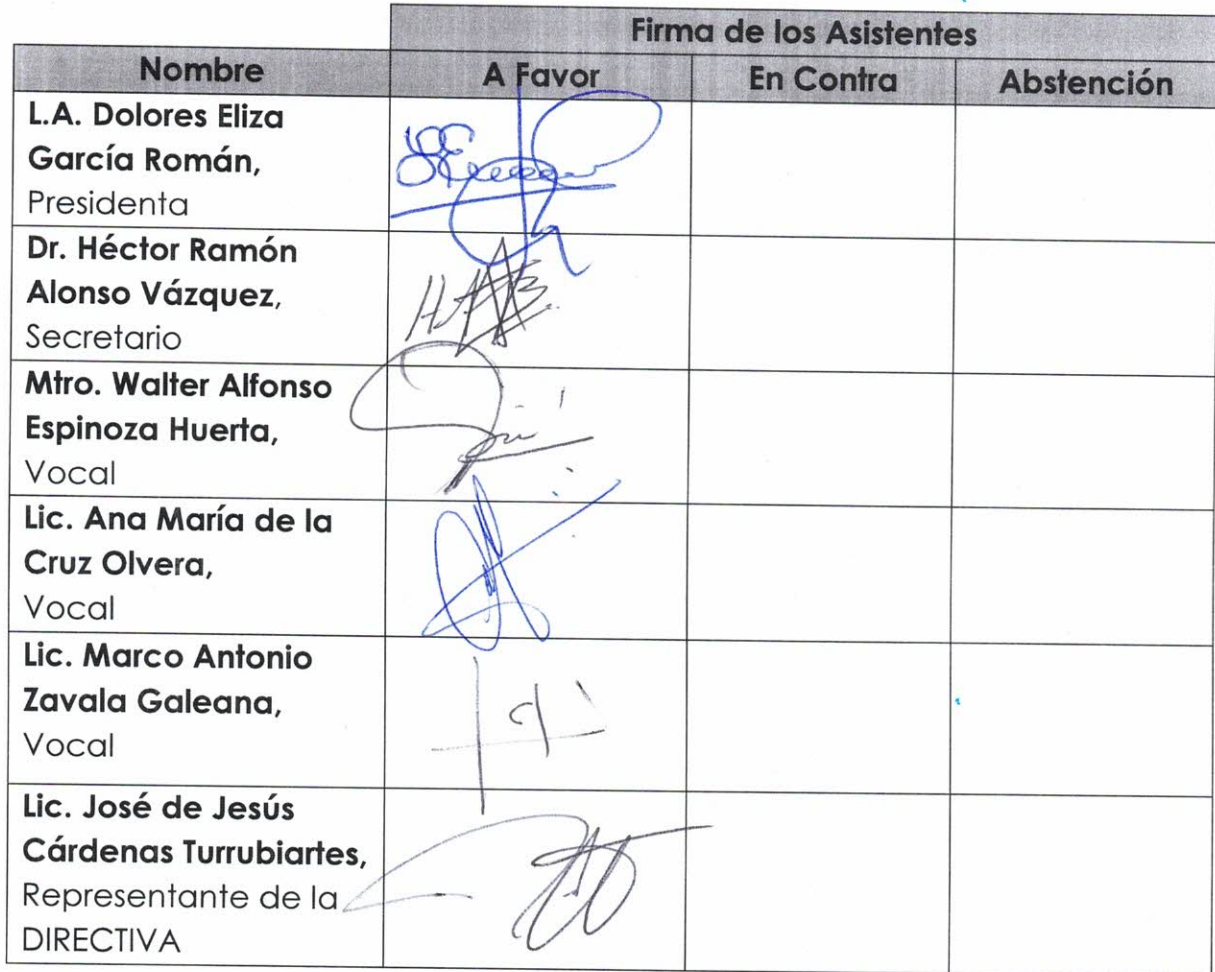 Firma de los Asistentes
Nombre
A Favor
En Contra
Abstención
L.A. Dolores Eliza
García Román,
Presidenta
Dr. Héctor Ramón
Alonso Vázquez,
Secretario
Mtro. Walter Alfonso
Espinoza Huerta,
Vocal
Lic. Ana María de la
Cruz Olvera,
Vocal
Lic. Marco Antonio
Zavala Galeana,
Vocal
Lic. José de Jesús
Cárdenas Turrubiartes,
Representante de la
DIRECTIVA